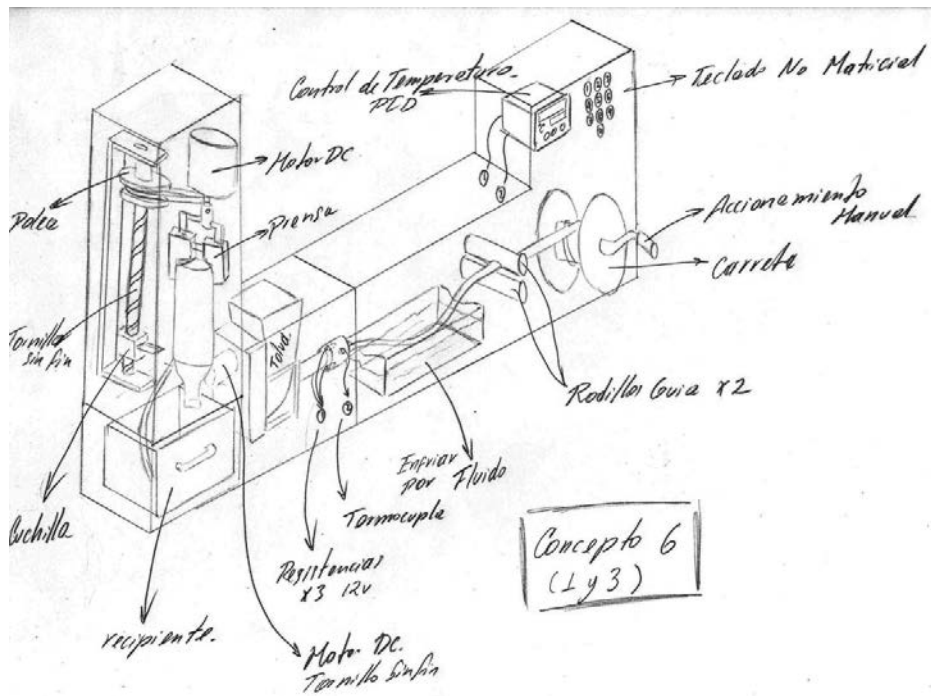 Control de Temperatura
PID
Teclado No Matricial
Motor DC
Polea
Prensa
Accionamiento
Manual
Carreta
Tornillo
sin fin
Tolva
Rodillos Guia x2
Cuchilla
Enfriar
por Fluido
Termocupla
Resistencias
x3 12v
recipiente.
Motor DC.
Tornillo sinfin
Concepto 6
(1 y 3)